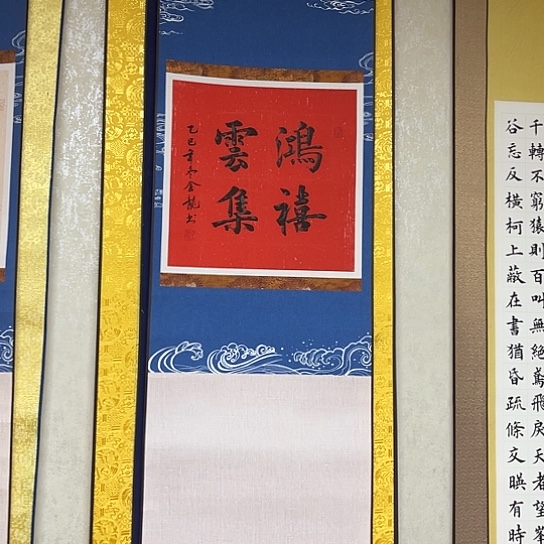 千轉不窮猿則百叫無絕鳶飛戾天者望峯
谷忘反橫柯上蔽在晝猶昏疏條交映有時
鴻禧
雲集
乙巳年
金龍书